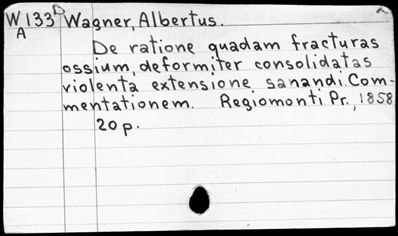 W133 Wagner, Albertus.
A
De ratione quadam fracturas
ossium, deformiter consolidatas
violenta extensione sanandi. Com-
mentationem. Regiomonti Pr., 1858
20 p.